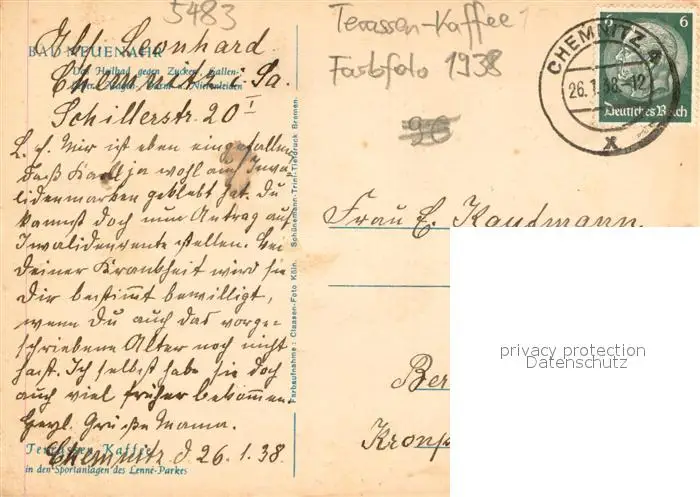 5483
Terassen-Kaffee
Farbfoto 1938
96
BAD NEUENAHR
Das Heilbad gegen Zucker, Gallen-
Leber, Magen-, Darm u. Nierenleiden
Abs. Leonhard
Chemnitz i. Sa.
Schillerstr. 20 I
CHEMNITZ 4
26.1.38-12
X
6 6
Deutsches Reich
L. E. Mir ist eben eingefallen,
daß Karl ja wohl auch Inva-
lidenmarken geklebt hat. Du
kannst doch nun Antrag auf
Invalidenrente stellen. Bei
deiner Krankheit wird sie
Dir bestimmt bewilligt,
wenn Du auch das vorge-
schriebene Alter noch nicht
hast. Ich selbst habe sie doch
auch viel früher bekommen.
Herzl. Grüße Mama.
Chemnitz d. 26.1.38.
Terrassen Kaffee
in den Sportanlagen des Lenné-Parkes
Farbaufnahme: Claasen-Foto Köln. Schünemann-Trini-Tiefdruck Bremen.
Frau E. Kaufmann.
Ber
Kronp
privacy protection
Datenschutz